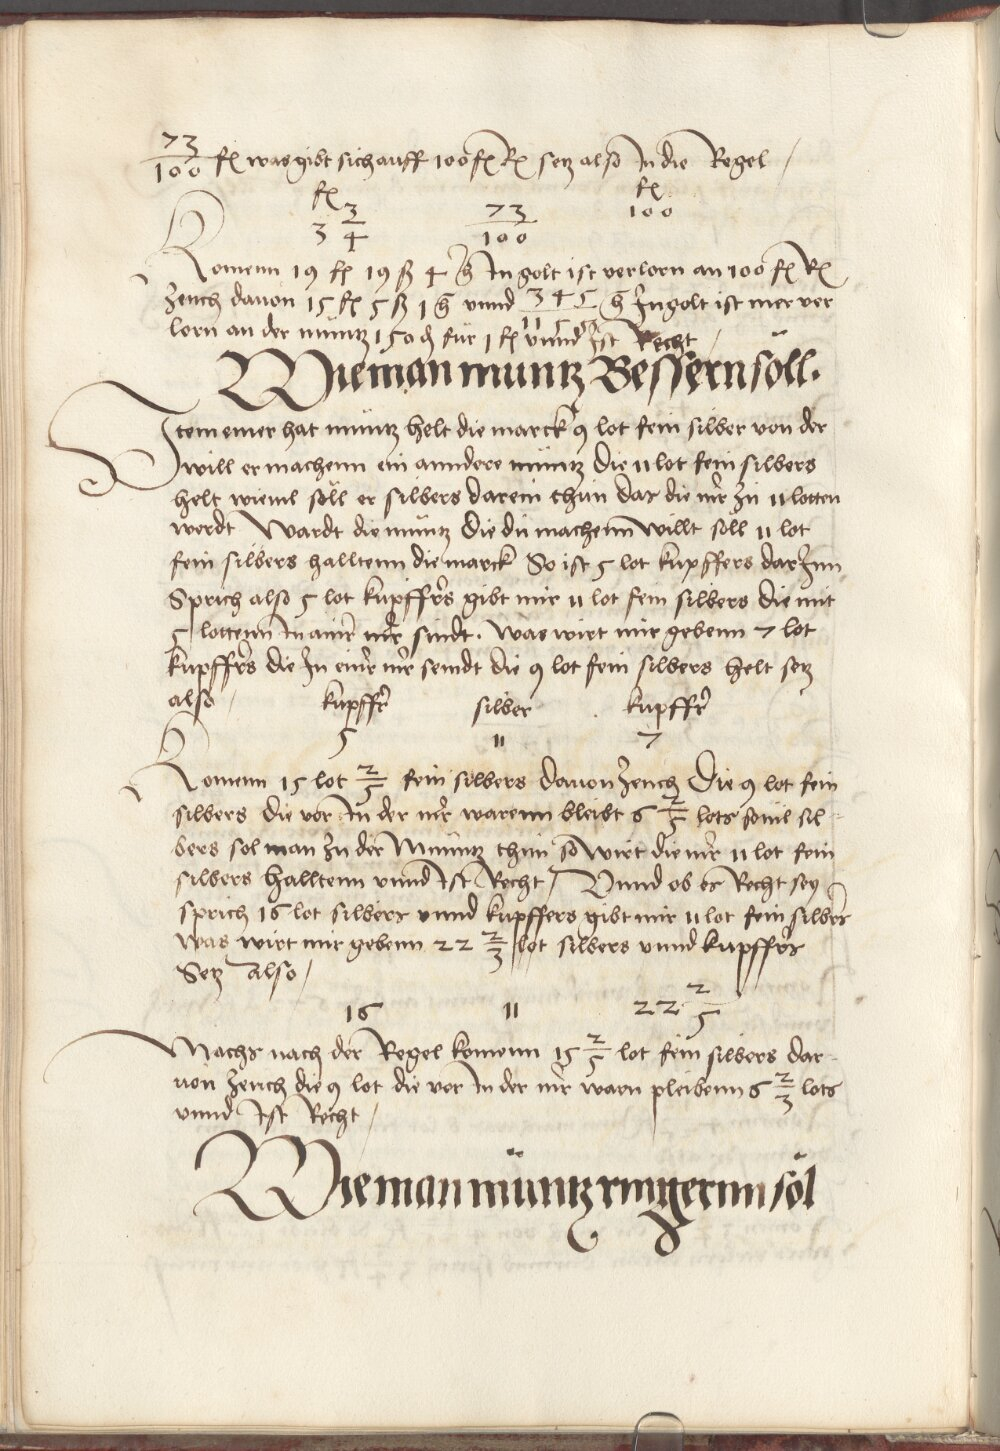 73/100 fl was gibt sich auff 100 fl R setz also In die Regel /
fl fl
3 3/4 73/100 100
Komenn 19 fl 19 ß 4 In golt ist verlorn an 100 fl R
Zeuch dauon 15 fl 5 ß 1 vnnd 345 In golt ist mer ver
lorn an der müntz 150 für 1 fl vnnd Ist Recht /
Wie man muntz Bessern söll.
Item einer hat müntz helt die marck 9 lot fein silber von der
will er machenn ein anndere müntz Die 11 lot fein silbers
helt wieuil söll er silbers darein thün dar die mr zu 11 lotten
werdt Wardt die müntz Die dü machenn willt söll 11 lot
fein silbers halltenn die marck So ist 5 lot kupffers dar Inn
Sprich also 5 lot kupffrs gibt mir 11 lot fein silbers die mit
5 lottenn In ainr mr sindt. Was wirt mir gebenn 7 lot
kupffrs die In einr mr seindt die 9 lot fein silbers helt setz
also / kupffr silber kupffr
5 11 7
Komenn 15 lot 2/5 fein silbers dauon Zeuch Die 9 lot fein
silbers die vor In der mr warenn bleibt 6 2/5 lots souil sil-
bers sol man Zu der Müntz thün so wirt die mr 11 lot fein
silbers halltenn vnnd Ist Recht / Vnnd ob es Recht sey
sprich 16 lot silbers vnnd kupffers gibt mir 11 lot fein silbers
was wirt mir gebenn 22 2/3 lot silbers vnnd kupffrs
Setz Also /
16 11 22 2/5
Machs nach der Regel komenn 15 2/5 lot fein silbers dar-
uon Zeuch die 9 lot die vor In der mr warn pleibenn 6 2/3 lots
vnnd Ist Recht /
Wie man müntz ringernn söl